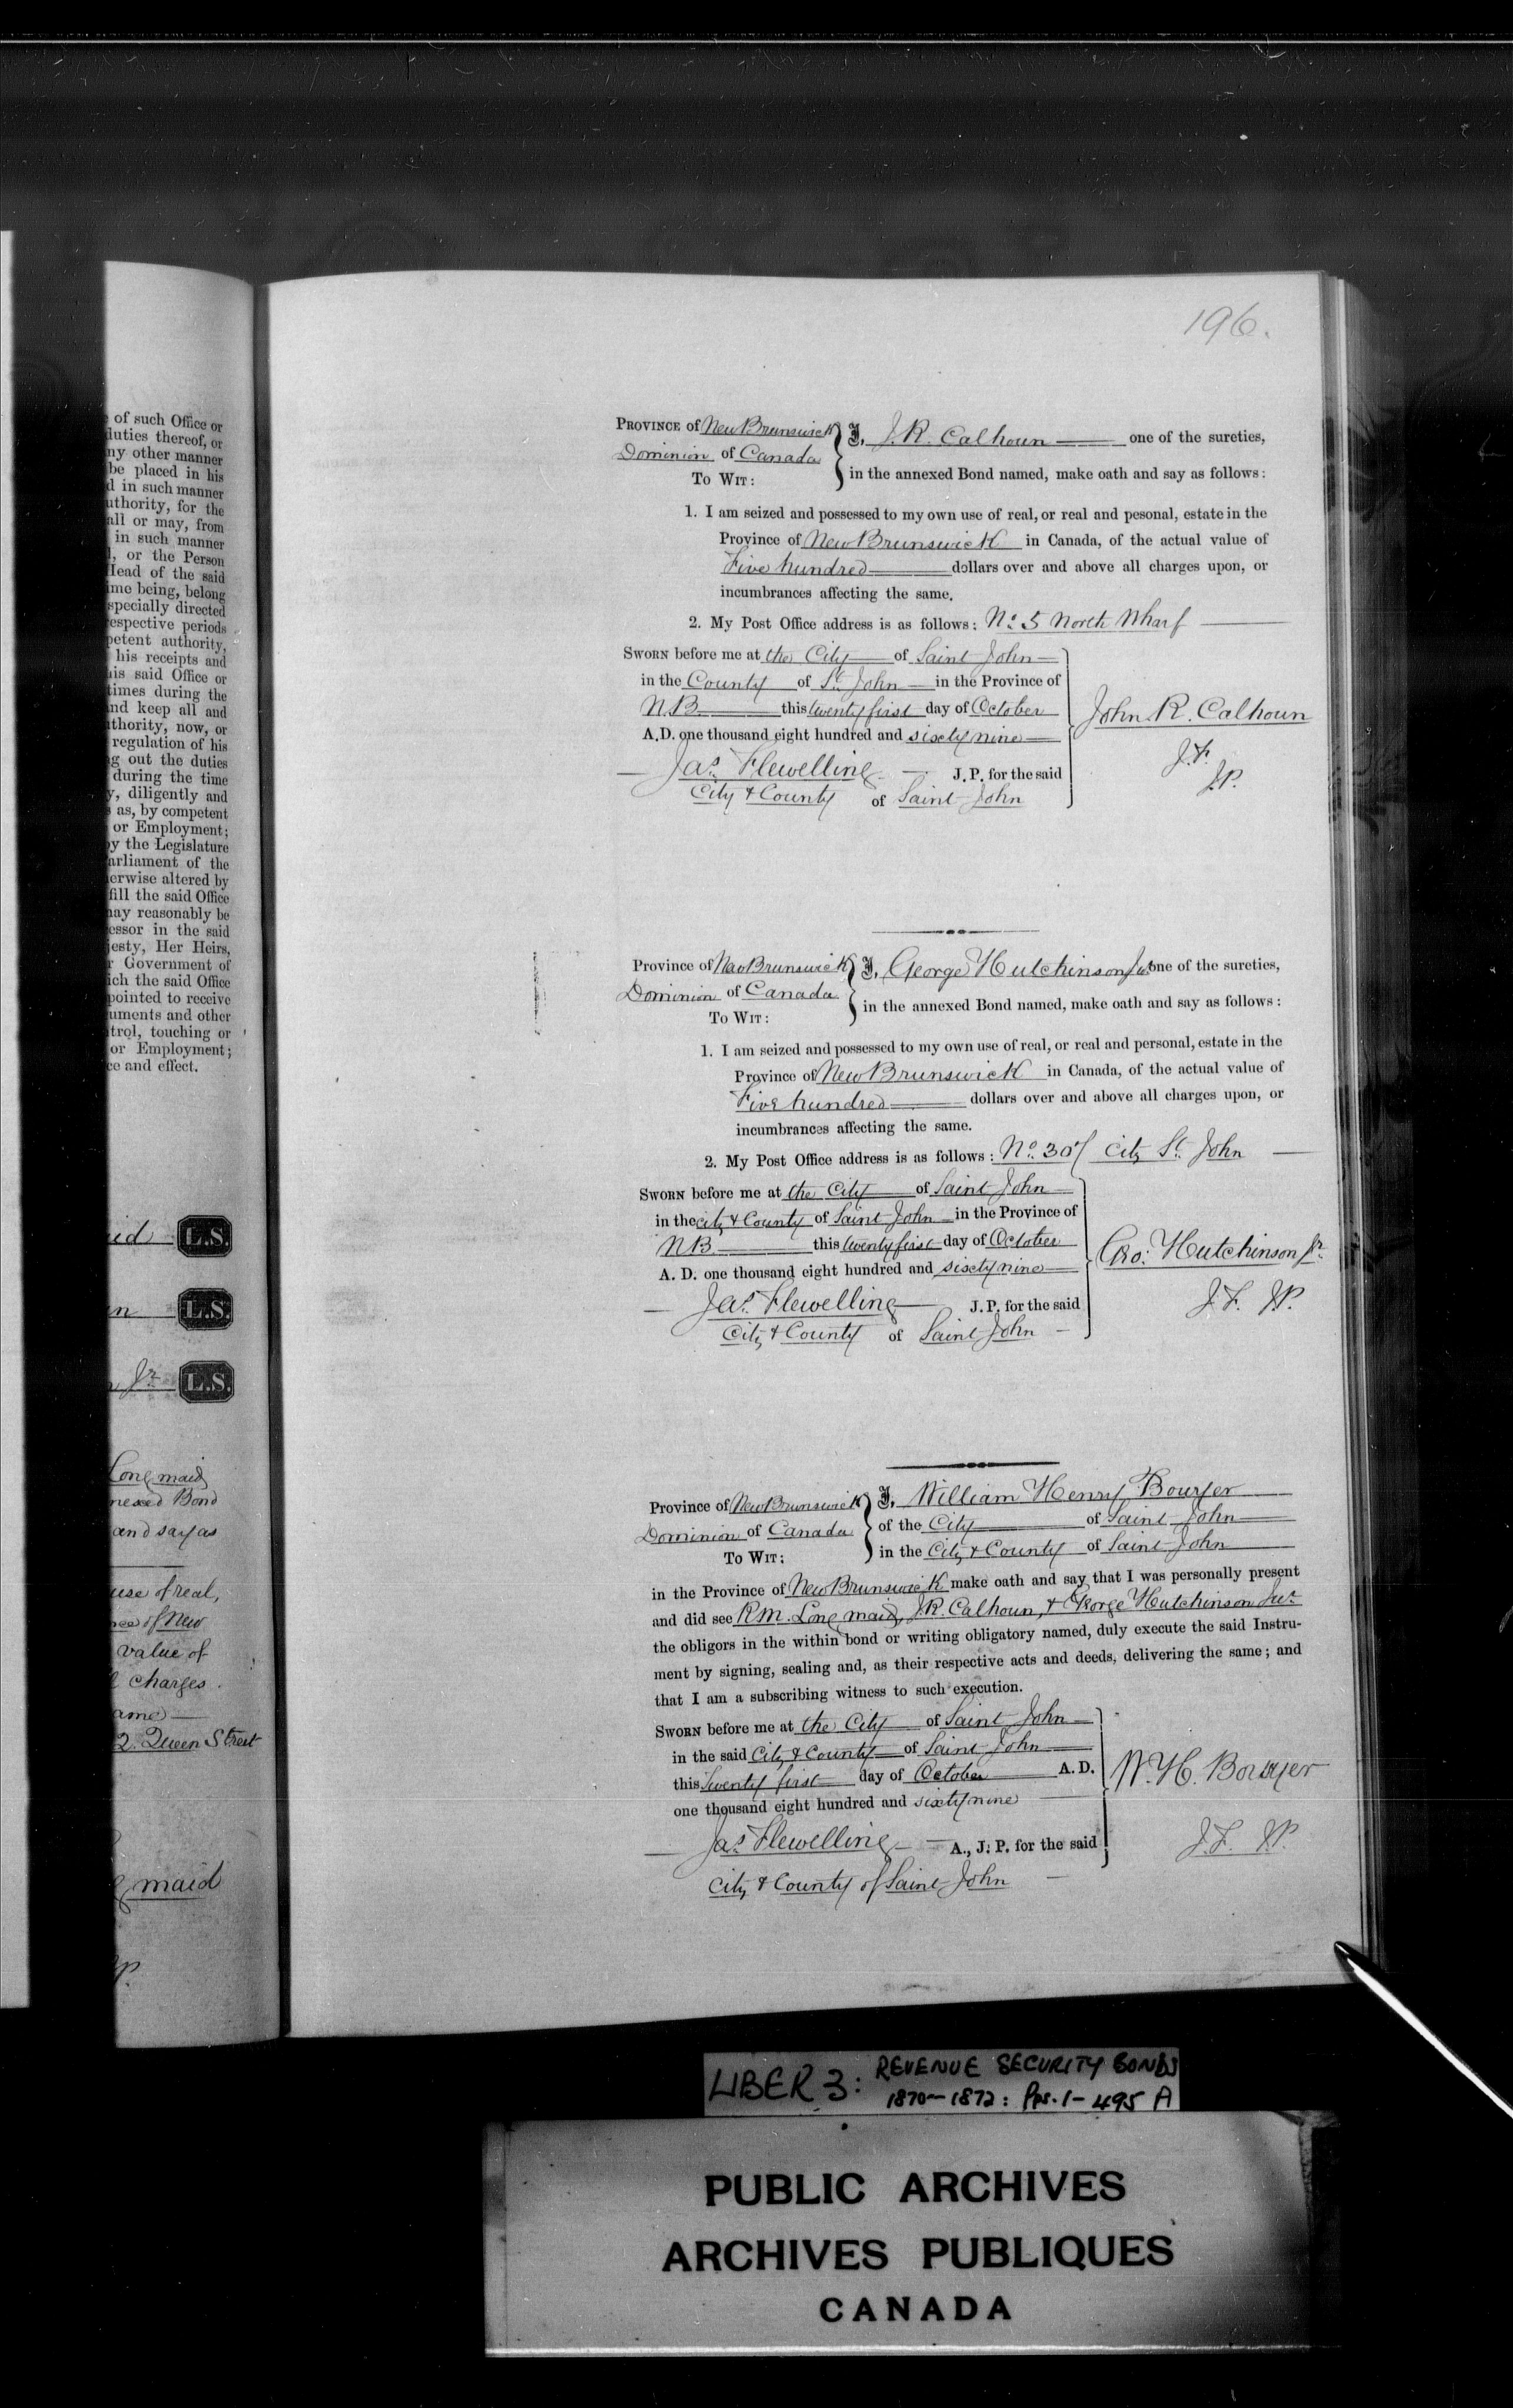 of such Office or
duties thereof, or
ny other manner
be placed in his
d in such manner
uthority, for the
all or may, from
in such manner
, or the Person
Head of the said
ime being, belong
specially directed
respective periods
petent authority,
his receipts and
his said Office or
times during the
and keep all and
uthority, now, or
regulation of his
g out the duties
during the time
y, diligently and
as, by competent
or Employment;
by the Legislature
arliament of the
erwise altered by
fill the said Office
may reasonably be
essor in the said
jesty, Her Heirs,
r Government of
ich the said Office
pointed to receive
uments and other
trol, touching or
or Employment;
ce and effect.
id L.S.
n L.S.
Jr L.S.
Longmaid
nexed Bond
and say as
use of real,
nce of New
value of
charges
ame
2 Queen Street
gmaid
JP.
196.
PROVINCE of New Brunswick } I, J. R. Calhoun one of the sureties,
Dominion of Canada
TO WIT: in the annexed Bond named, make oath and say as follows:
1. I am seized and possessed to my own use of real, or real and pesonal, estate in the
Province of New Brunswick in Canada, of the actual value of
Five hundred dollars over and above all charges upon, or
incumbrances affecting the same.
2. My Post Office address is as follows: No. 5 North Wharf
SWORN before me at the City of Saint John
in the County of St. John in the Province of
N B this twenty first day of October
A.D. one thousand eight hundred and sixty nine
John R. Calhoun
Jas. Flewelling J.P. for the said
City & County of Saint John
J.F.
J.P.
Province of New Brunswick } I, George Hutchinson Jur one of the sureties,
Dominion of Canada
TO WIT: in the annexed Bond named, make oath and say as follows:
1. I am seized and possessed to my own use of real, or real and personal, estate in the
Province of New Brunswick in Canada, of the actual value of
Five hundred dollars over and above all charges upon, or
incumbrances affecting the same.
2. My Post Office address is as follows: No. 307 City St. John
SWORN before me at the City of Saint John
in the city & County of Saint John in the Province of
N B this twenty first day of October
A. D. one thousand eight hundred and sixty nine
Geo: Hutchinson Jr.
Jas. Flewelling J.P. for the said
City & County of Saint John
J.F. J.P.
Province of New Brunswick } I, William Henry Bowyer
Dominion of Canada of the City of Saint John
TO WIT: in the City & County of Saint John
in the Province of New Brunswick make oath and say that I was personally present
and did see R M. Longmaid, J. R. Calhoun, & George Hutchinson Jur.
the obligors in the within bond or writing obligatory named, duly execute the said Instru-
ment by signing, sealing and, as their respective acts and deeds, delivering the same; and
that I am a subscribing witness to such execution.
SWORN before me at the City of Saint John
in the said City & County of Saint John
this Twenty first day of October A.D.
one thousand eight hundred and sixty nine
W. H. Bowyer
Jas. Flewelling A., J. P. for the said
City & County of Saint John
J.F. J.P.
LIBER 3: REVENUE SECURITY BONDS
1870-1872: Pps. 1-495 A
PUBLIC ARCHIVES
ARCHIVES PUBLIQUES
CANADA